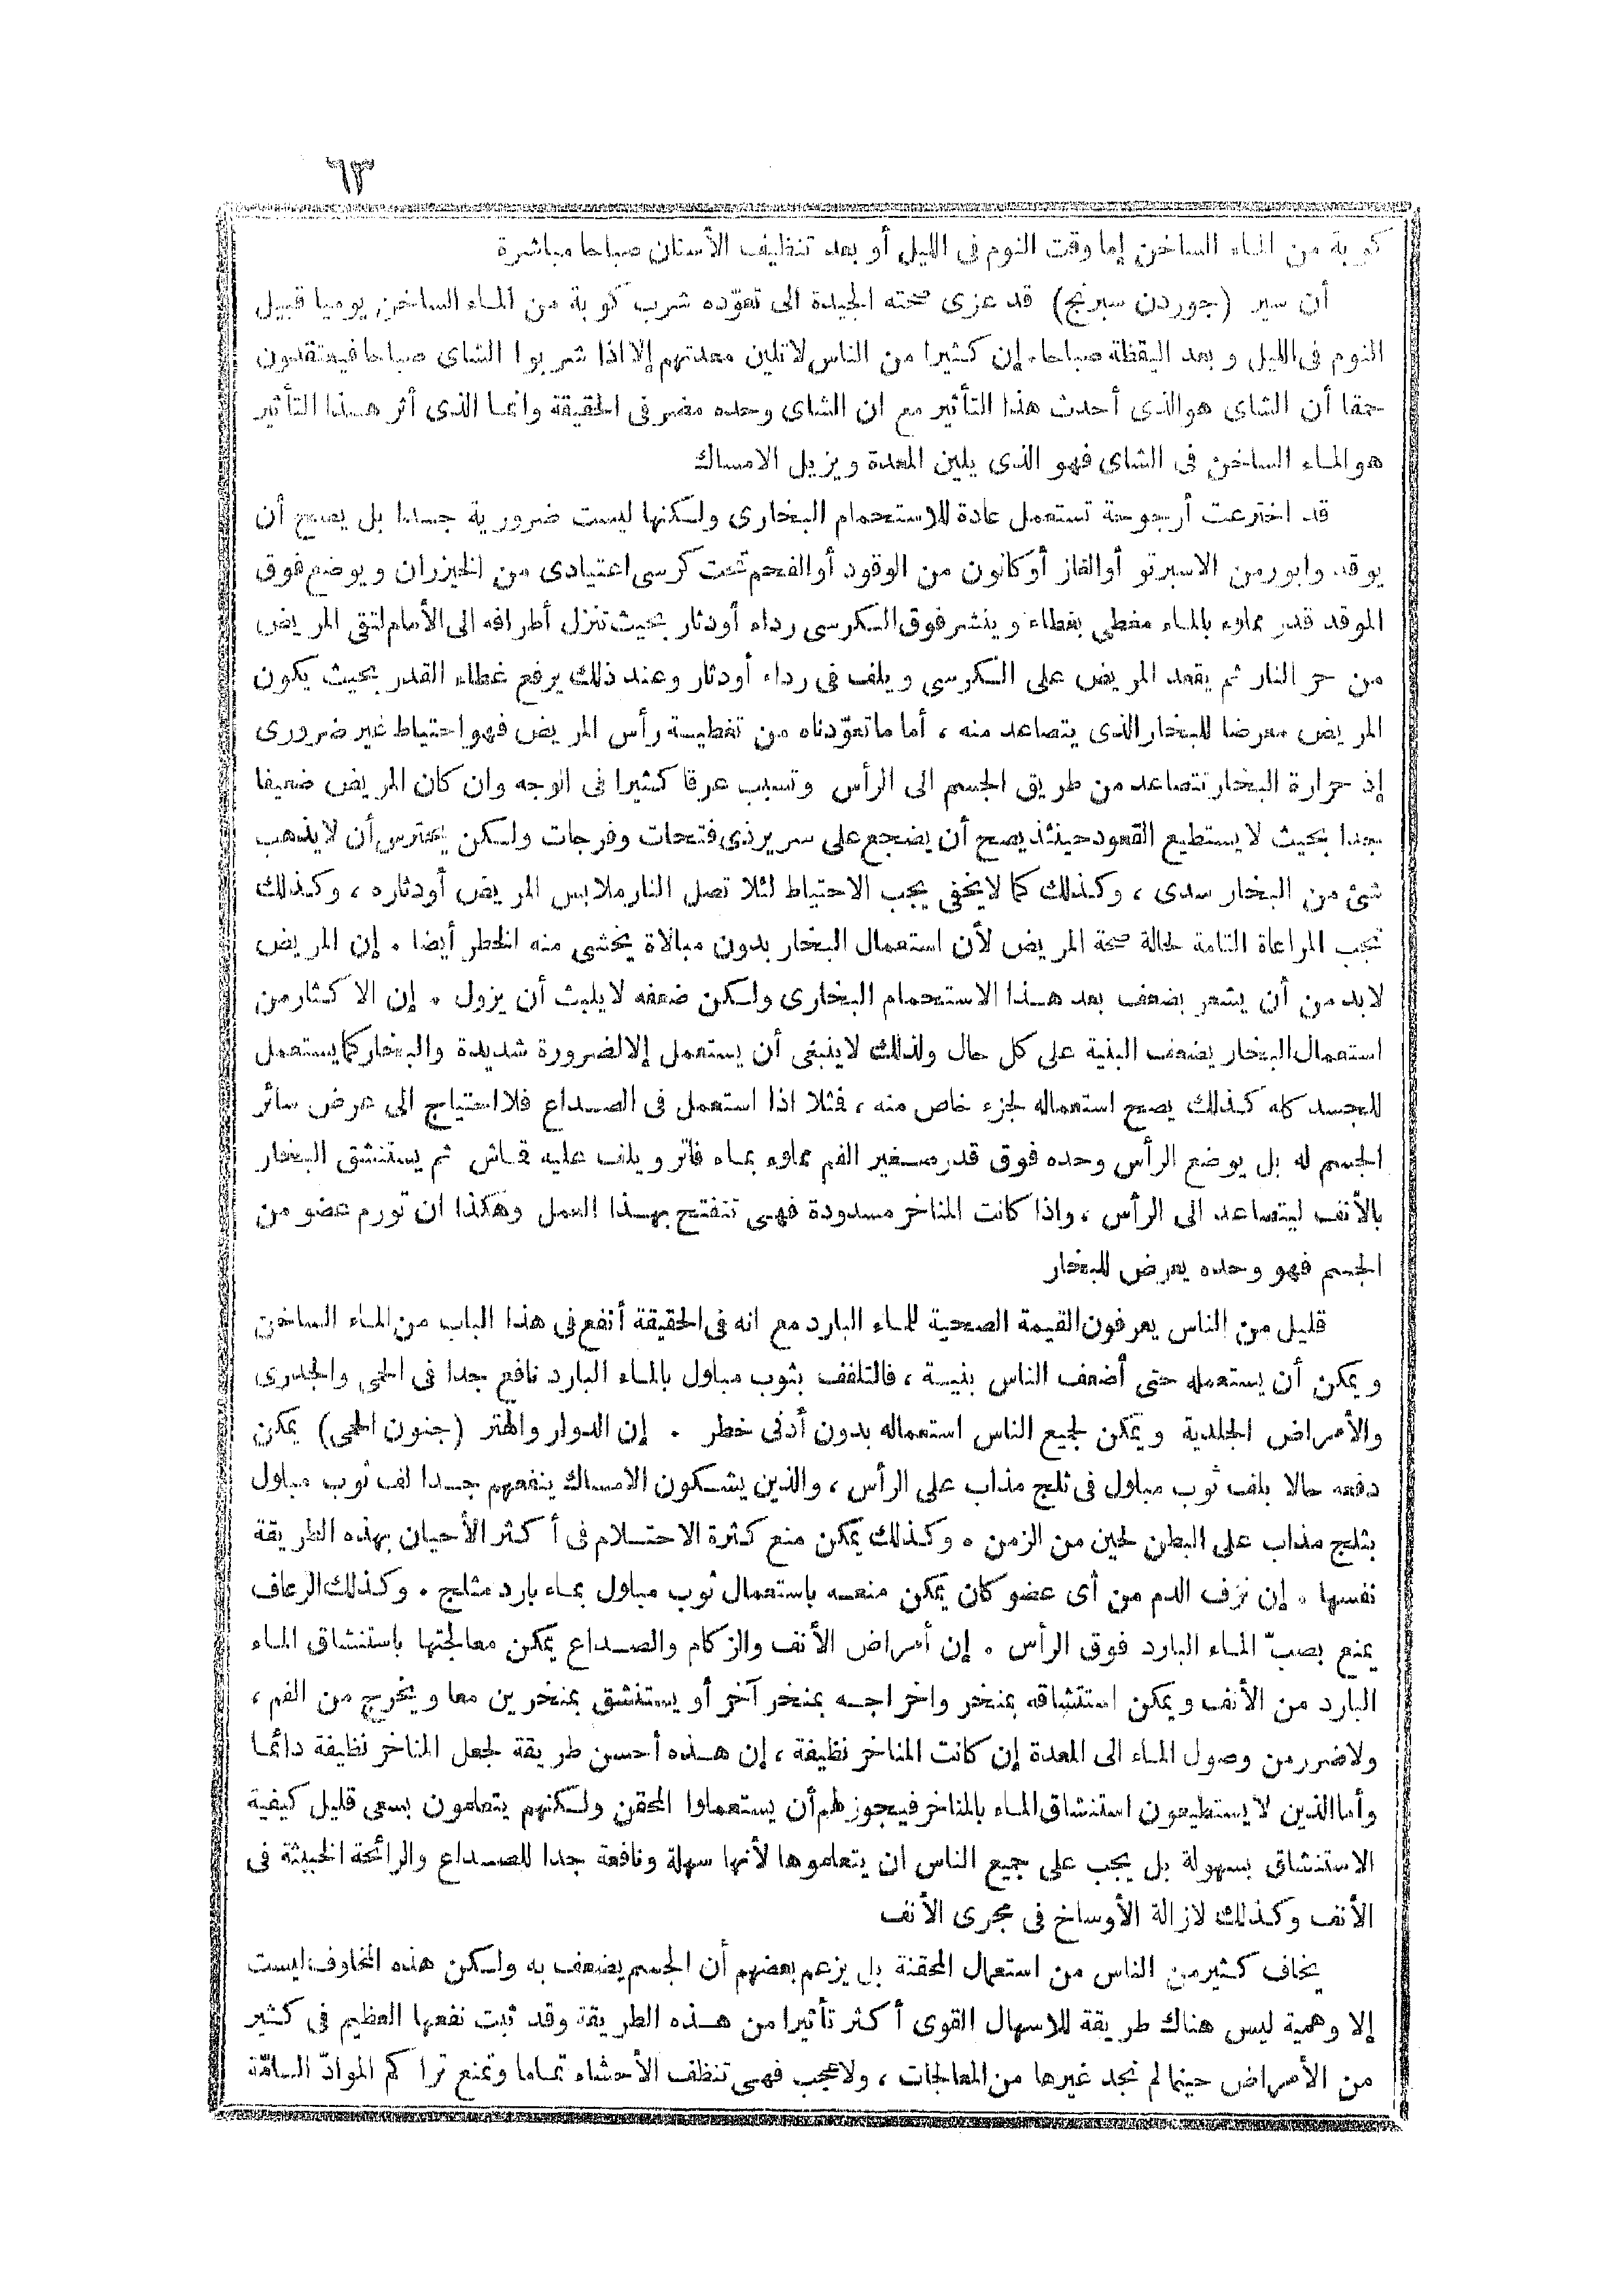 ٦٣
كوبة من الماء الساخن إما وقت النوم فى الليل أو بعد تنظيف الأسنان صباحا مباشرة
أن سير (جوردن سبرنج) قد عزى صحته الجيدة الى تعوّده شرب كوبة من الماء الساخن يوميا قبيل
النوم فى الليل وبعد اليقظة صباحا. إن كثيرا من الناس لاتلين معدتهم إلا اذا شربوا الشاى صباحا فيعتقدون
حمقا أن الشاى هو الذى أحدث هذا التأثير مع ان الشاى وحده مضر فى الحقيقة وانما الذى أثر هذا التأثير
هو الماء الساخن فى الشاى فهو الذى يلين المعدة ويزيل الامساك
قد اخترعت أرجوحة تستعمل عادة للاستحمام البخارى ولكنها ليست ضرورية جدا بل يصح أن
يوقد وابور من الاسبرتو أو الغاز أو كانون من الوقود أو الفحم تحت كرسى اعتيادى من الخيزران ويوضع فوق
الموقد قدر مملوء بالماء مغطى بغطاء وينشر فوق الكرسى رداء أو دثار بحيث تنزل أطرافه الى الأمام لتقى المريض
من حر النار ثم يقعد المريض على الكرسى ويلف فى رداء أو دثار وعند ذلك يرفع غطاء القدر بحيث يكون
المريض معرضا للبخار الذى يتصاعد منه ، أما ما تعوّدناه من تغطية رأس المريض فهو احتياط غير ضرورى
إذ حرارة البخار تتصاعد من طريق الجسم الى الرأس وتسبب عرقا كثيرا فى الوجه وان كان المريض ضعيفا
جدا بحيث لا يستطيع القعود حينئذ يصح أن يضجع على سرير ذى فتحات وفرجات ولكن يحترس أن لا يذهب
شئ من البخار سدى ، وكذلك كما لا يخفى يجب الاحتياط لئلا تصل النار ملابس المريض أو دثاره ، وكذلك
تجب المراعاة التامة لحالة صحة المريض لأن استعمال البخار بدون مبالاة يخشى منه الخطر أيضا . إن المريض
لابد من أن يشعر بضعف بعد هذا الاستحمام البخارى ولكن ضعفه لا يلبث أن يزول . إن الاكثار من
استعمال البخار يضعف البنية على كل حال ولذلك لا ينبغى أن يستعمل إلا لضرورة شديدة والبخار كما يستعمل
للجسد كله كذلك يصح استعماله لجزء خاص منه ، فثلا اذا استعمل فى الصداع فلا احتياج الى عرض سائر
الجسم له بل يوضع الرأس وحده فوق قدر صغير الفم مملوء بماء فاتر ويلف عليه قماش ثم يستنشق البخار
بالأنف ليتصاعد الى الرأس ، واذا كانت المناخر مسدودة فهى تنفتح بهذا العمل وهكذا ان تورم عضو من
الجسم فهو وحده يعرض للبخار
قليل من الناس يعرفون القيمة الصحية للماء البارد مع انه فى الحقيقة أنفع فى هذا الباب من الماء الساخن
ويمكن أن يستعمله حتى أضعف الناس بنية ، فالتلفف بثوب مبلول بالماء البارد نافع جدا فى الحمى والجدرى
والأمراض الجلدية ويمكن لجيع الناس استعماله بدون أدنى خطر . إن الدوار والهتر (جنون الحمى) يمكن
دفعه حالا بلف ثوب مبلول فى ثلج مذاب على الرأس ، والذين يشكون الامساك ينفعهم جدا لف ثوب مبلول
بثلج مذاب على البطن لحين من الزمن . وكذلك يمكن منع كثرة الاحتلام فى أكثر الأحيان بهذه الطريقة
نفسها . إن نزف الدم من أى عضو كان يمكن منعه باستعمال ثوب مبلول بماء بارد مثلج . وكذلك الرعاف
يمنع بصبّ الماء البارد فوق الرأس . إن أمراض الأنف والزكام والصداع يمكن معالجتها باستنشاق الماء
البارد من الأنف ويمكن استنشاقه بمنخر واخراجه بمنخر آخر أو يستنشق بمنخرين معا ويخرج من الفم ،
ولا ضرر من وصول الماء الى المعدة إن كانت المناخر نظيفة ، إن هذه أحسن طريقة لجعل المناخر نظيفة دائما
وأما الذين لا يستطيعون استنشاق الماء بالمناخر فيجوز لهم أن يستعملوا المحقن ولكنهم يتعلمون بسعى قليل كيفية
الاستنشاق بسهولة بل يجب على جميع الناس ان يتعلموها لأنها سهلة ونافعة جدا للصداع والرائحة الخبيثة فى
الأنف وكذلك لازالة الأوساخ فى مجرى الأنف
يخاف كثير من الناس من استعمال الحقنة بل يزعم بعضهم أن الجسم يضعف به ولكن هذه المخاوف ليست
إلا وهمية ليس هناك طريقة للاسهال القوى أكثر تأثيرا من هذه الطريقة وقد ثبت نفعها العظيم فى كثير
من الأمراض حينما لم نجد غيرها من المعالجات ، ولا عجب فهى تنظف الأحشاء تماما وتمنع تراكم الموادّ السامّة